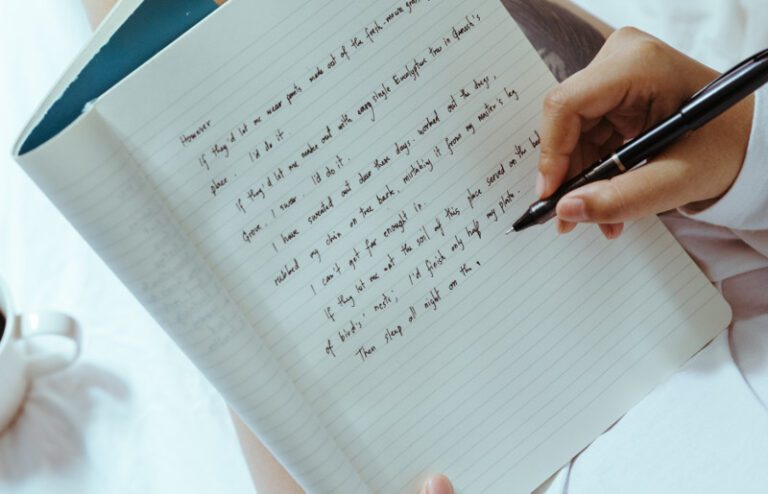 However
If they'd let me wear pants made out of the fresh-mown grass
place. I'd do it.
If they'd let me make out with every single Eucalyptus tree in Queneil's
Grove, I swear. I'd do it.
I have sweated out dew these days, worked out the dregs,
rubbed my chin on tree bark, mistaking it from my master's leg
I can't get far enough in.
If they let me eat the soil of this place served on the bed
of birds' nests; I'd finish only half my plate.
Then sleep all night on the